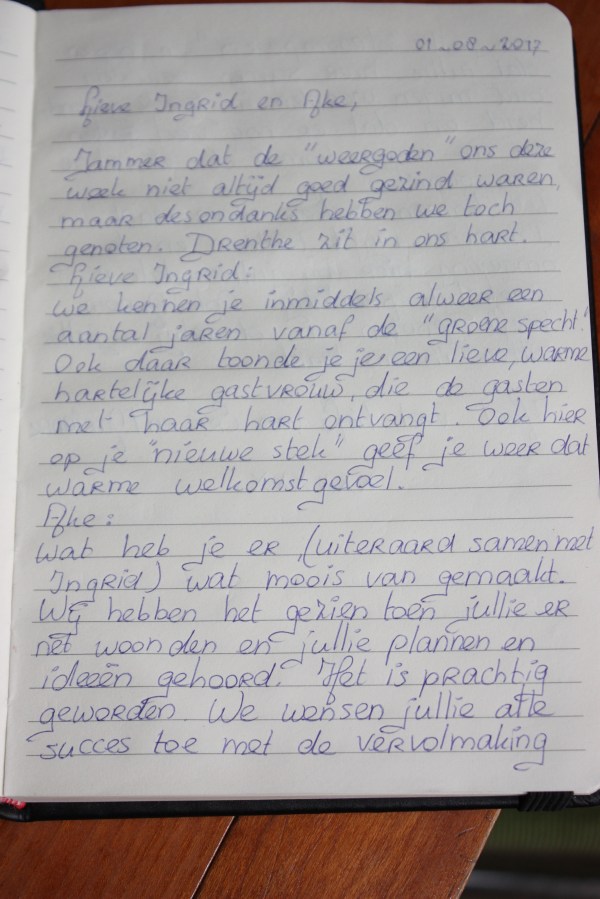 01-08-2017
Lieve Ingrid en Afke,
Jammer dat de "weergoden" ons deze
week niet altijd goed gezind waren,
maar desondanks hebben we toch
genoten. Drenthe zit in ons hart.
Lieve Ingrid:
We kennen je inmiddels alweer een
aantal jaren vanaf de "groene specht."
Ook daar toonde je je een lieve, warme
hartelijke gastvrouw, die de gasten
met haar hart ontvangt. Ook hier
op je "nieuwe stek" geef je weer dat
warme welkomstgevoel.
Afke:
Wat heb je er (uiteraard samen met
Ingrid) wat moois van gemaakt.
Wij hebben het gezien toen jullie er
net woonden en jullie plannen en
ideeën gehoord. Het is prachtig
geworden. We wensen jullie alle
succes toe met de vervolmaking